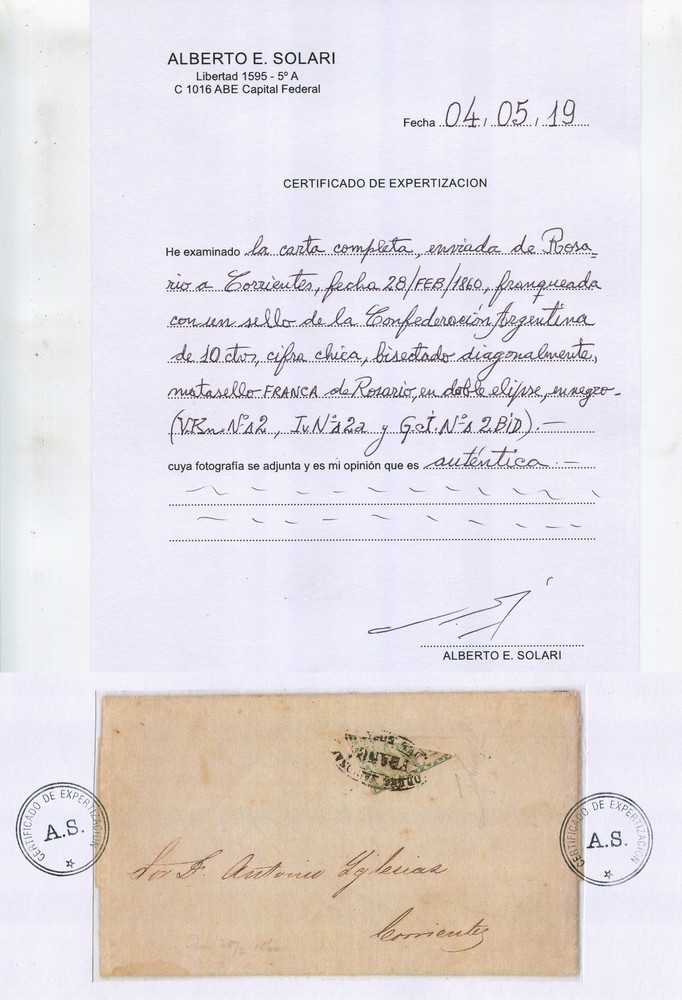 ALBERTO E. SOLARI
Libertad 1595 - 5º A
C 1016 ABE Capital Federal
Fecha 04/05/19
CERTIFICADO DE EXPERTIZACION
He examinado la carta completa, enviada de Rosa=
rio a Corrientes, fecha 28/FEB/1860, franqueada
con un sello de la Confederación Argentina
de 10 ctv, cifra chica, bisectado diagonalmente,
matasello FRANCA de Rosario, en doble elipse, en negro-
(V.Kn. Nº 2, Iv. Nº 2a y GCJ. Nº 2 BID).-
cuya fotografía se adjunta y es mi opinión que es auténtica.-
ALBERTO E. SOLARI
FRANCA
CERTIFICADO DE EXPERTIZACION
A.S.
CERTIFICADO DE EXPERTIZACION
A.S.
Sor D. Antonio Yglesias
Corrientes